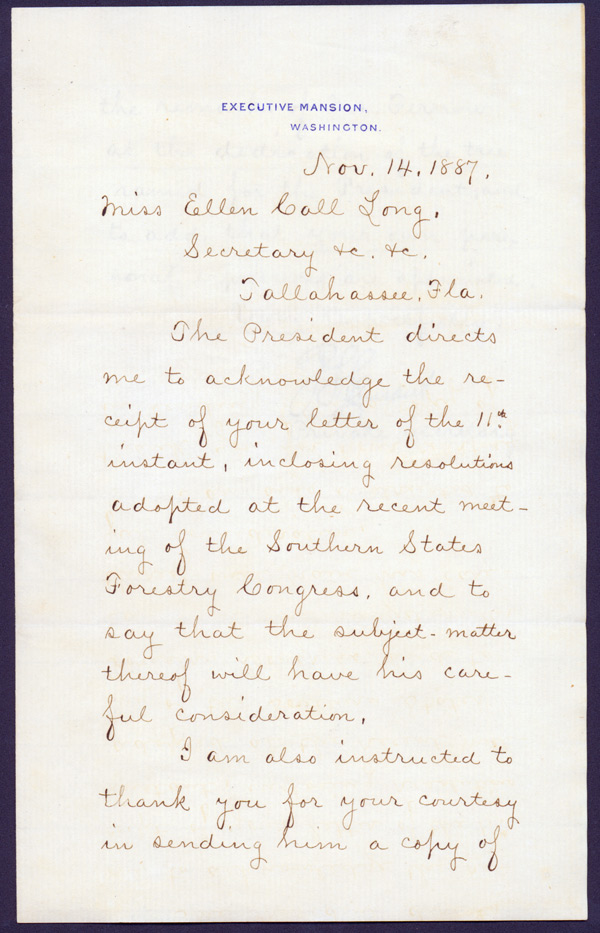 EXECUTIVE MANSION,
WASHINGTON.
Nov. 14, 1887.
Miss Ellen Call Long,
Secretary &c. &c.
Tallahassee, Fla.
The President directs
me to acknowledge the re-
ceipt of your letter of the 11th
instant, inclosing resolutions
adopted at the recent meet-
ing of the Southern States
Forestry Congress, and to
say that the subject-matter
thereof will have his care-
ful consideration.
I am also instructed to
thank you for your courtesy
in sending him a copy of